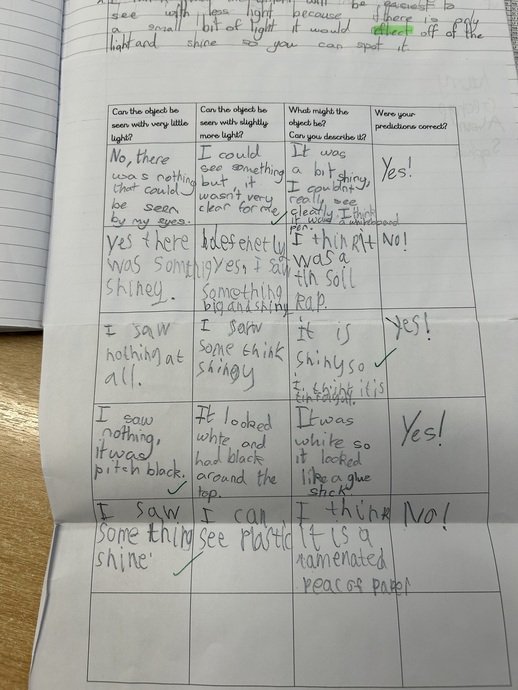 be easiest to
see with less light because there is only
a small bit of light it would reflect off of the
light and shine so you can spot it
Can the object be
seen with very little
light?
Can the object be
seen with slightly
more light?
What might the
object be?
Can you describe it?
Were your
predictions correct?
No, there
was nothing
that could
be seen
by my eyes.
I could
see something
but it
wasn't very
clear for me
It was
a bit shiny,
I couldn't
really see
cleatly. I think
it was a whiteboard
pen.
Yes!
yes there
was somthing
shiney.
defenetly
yes, I saw
something
big and shiny
I think it
was a
tin soil
rap.
No!
I saw
nothing at
all.
I saw
some think
shingy
it is
shiny so
i think it is
Yes!
I saw
nothing,
it was
pitch black.
It looked
white and
had black
around the
top.
It was
white so
it looked
like a glue
stick
Yes!
I saw
some thing
shine
I can
see plastic
I think
it is a
tamenated
peac of paper
No!